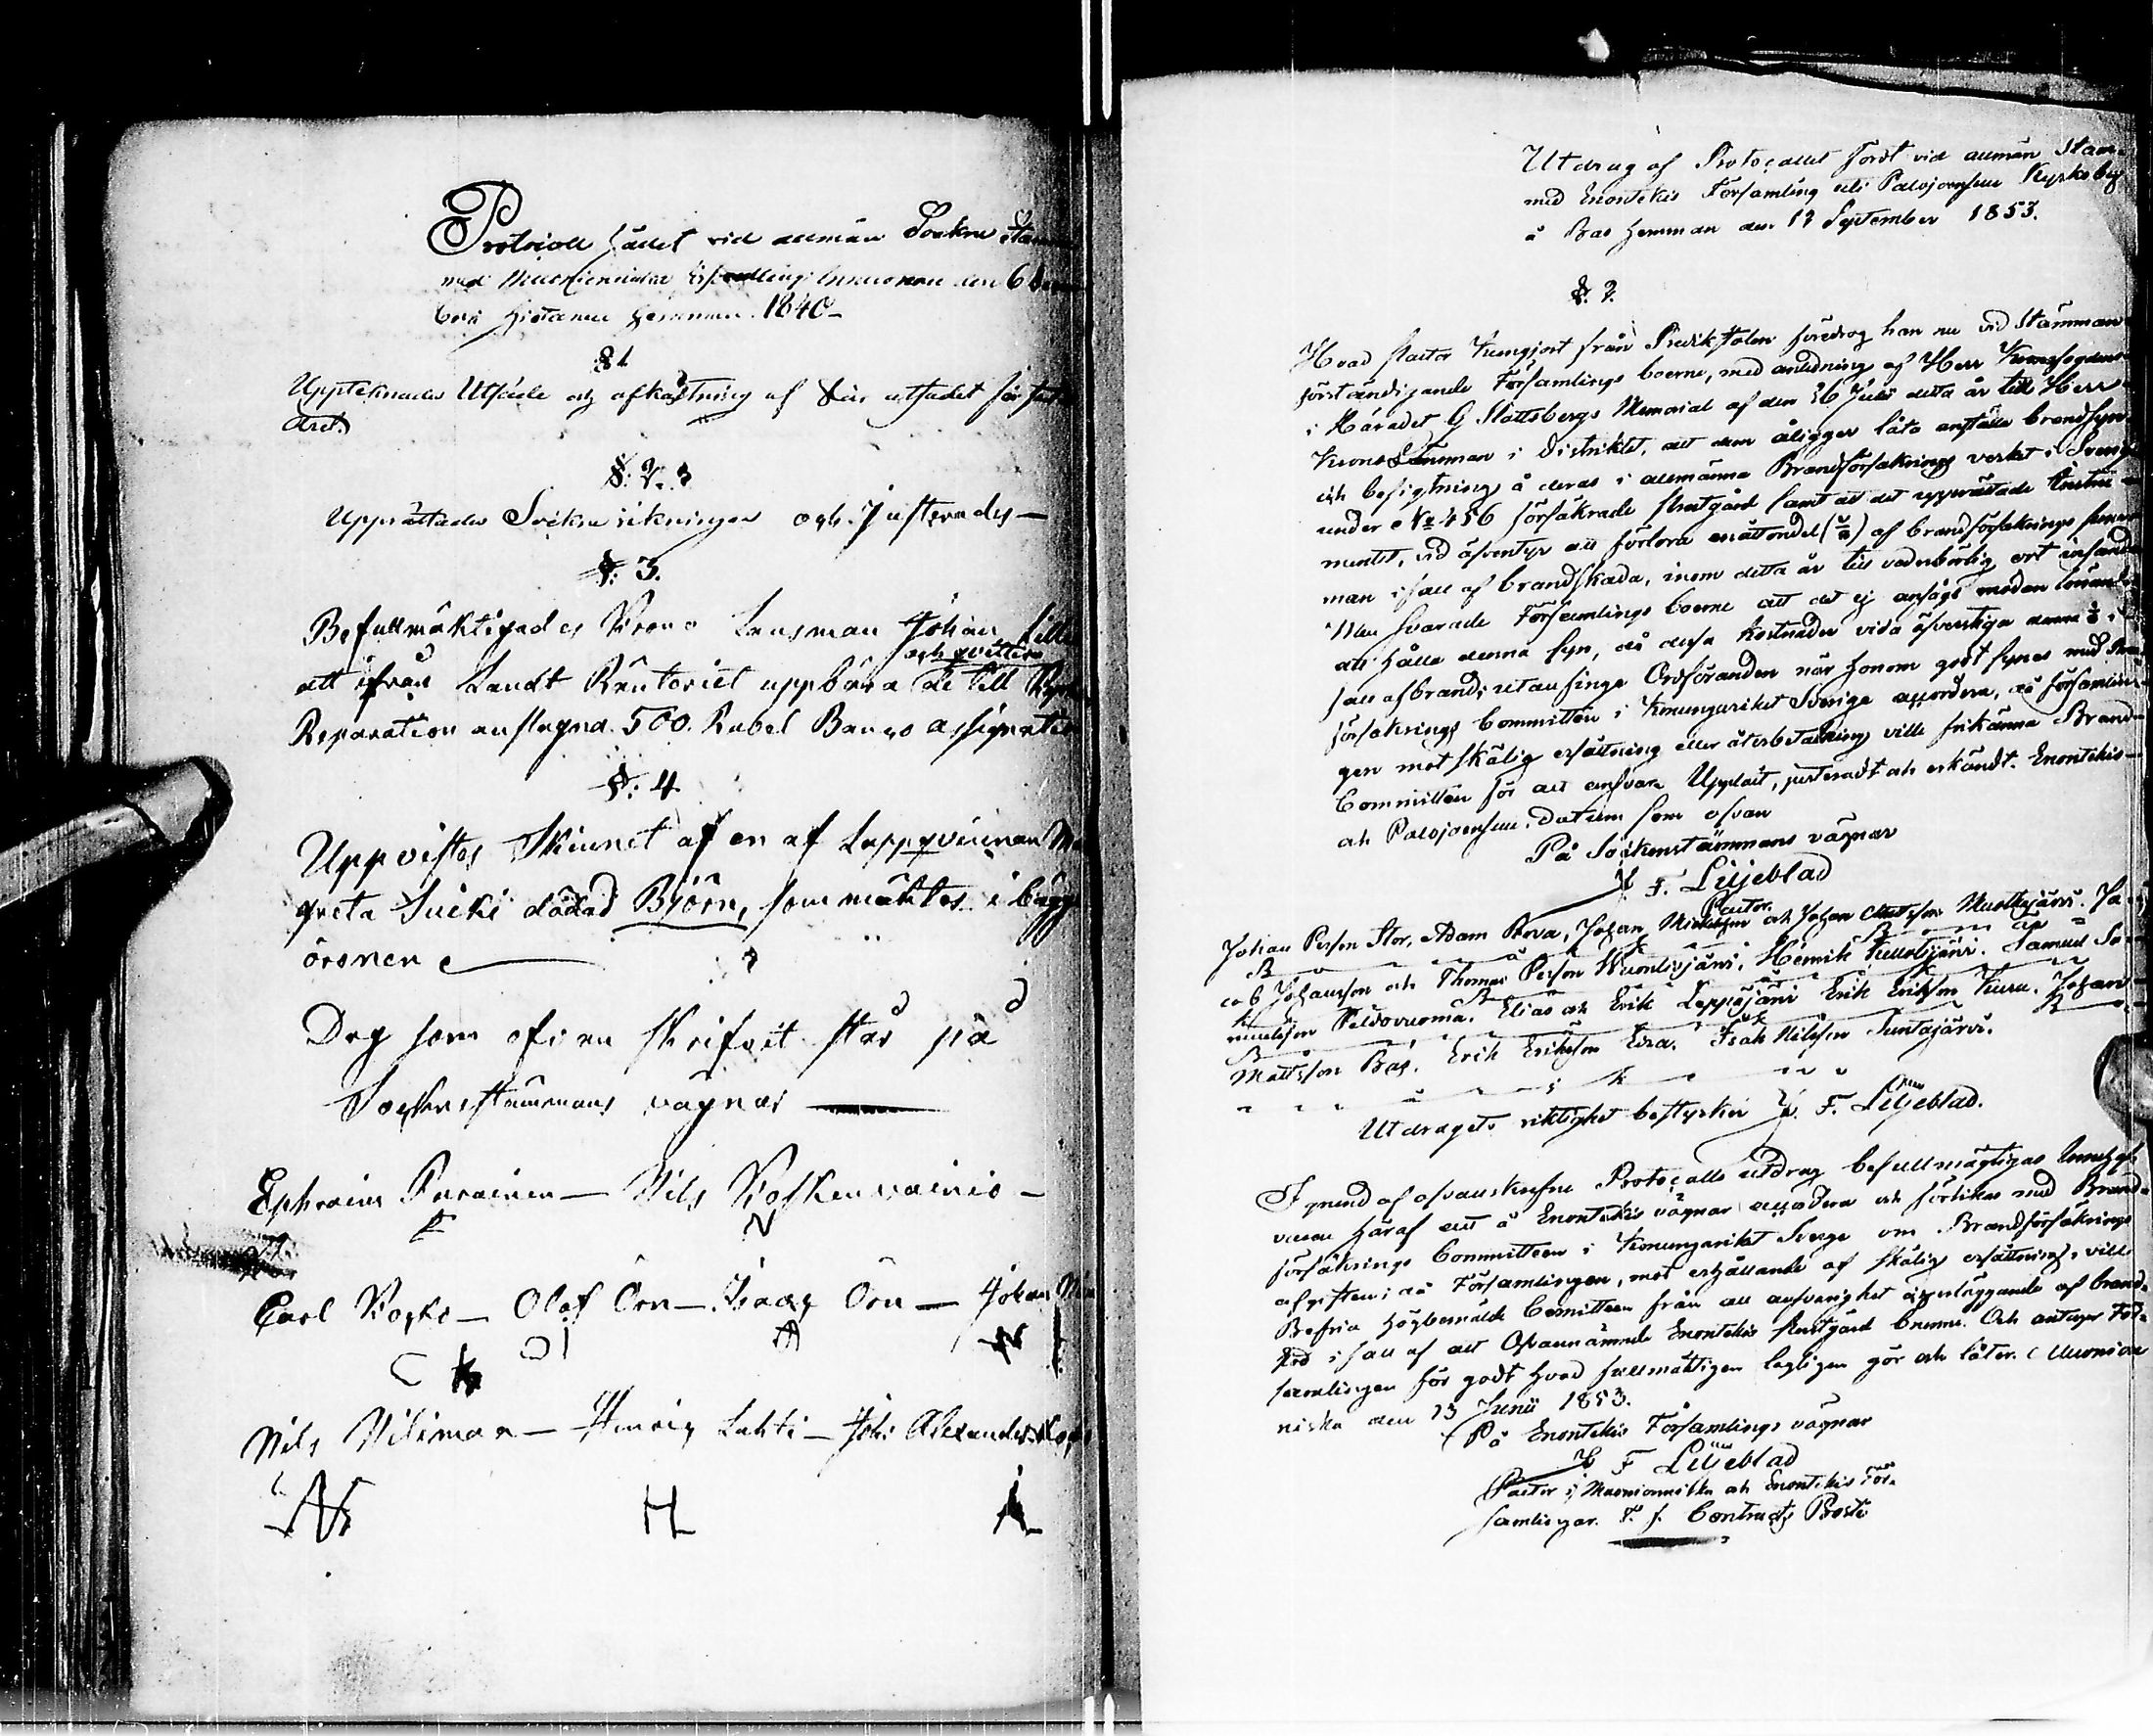 Protocoll hållet vid allmän Sockne Stäm
med Muonioniska församling den 6
Hietanen hemman. 1840
§ 1
Upptecknades Utsäde och afkastning af utsädet för
året.
§: 2.
Upprättades Sockne räkningen och Justerades
§: 3.
Befullmäktigades Krono Lensman Johan
och qvittera
att ifrån Landt Ränteriet uppbära de till
Reparation anslagna 500. Rubel Banco Assignatio
§: 4
Uppvistes Skinnet af en af Lappqvinnan Ma
greta Sieki dödad Björn, som mäktes i bägge
öronen
Dag som ofvan Skrifvit står på
Sockenstämmans vägnar
Ephraim Parainen — Nils Koskenvainio —
E N
Carl Rosks — Olof Örn — Isaac Örn — Johan
Nils Niliman — Henric Lahti — Joh: Alexander
N H A
Utdrag af Protocollet fördt vid allmän Stäm
med Enontekis Församling uti Palojoensuu Kyrkoby
å Bas hemman den 13 September 1853.
§. 2.
Hvad Pastor kungjort från Predikstolen föredrog han nu vid Stämman
förständigande Församlings boerne, med anledning af Herr Kronofogden
i Häradet G Slottsbergs Memorial af den 26 Juli detta år till Herr
KronoLänsman i Distriktet, att dem åligger låta anställa brandsyn
och besigtning å deras i allmänna Brandförsäkrings verket i Sverige
under No 456 försäkrade Prestgård samt att det upprättade Instru
mentet, vid äfventyr att förlora en åttondel (⅛) af brandförsäkrings sum
man i fall af brandskada, inom detta år till vederbörlig ort insända
Men svarade Församlings boerne att det ej ansågs mödan lönande
att hålla denna syn, då dessa kostnader vida öfverstiga denna ⅛ i
fall af brand; utan finge Ordföranden när honom godt synes med Brand
försäkrings Committén i Konungariket Sverige accordera, då församlin
gen mot skälig ersättning eller återbetalning ville frikänna Brand
Committén för allt ansvar. Uppläst, justeradt och erkändt. Enontekis
och Palojoensuu. Datum som ofvan
På Sockenstämmans vägnar
F. Liljeblad
Pastor.
Johan Persson Stor, Adam Rova, Johan och Johan Mattsson Muotkajärvi. Ja
cob Johansson och Thomas Persson Vuontisjärvi. Henrik Kuttajärvi. Samuel Sa
muelsson Peldovuoma. Elias och Erik Leppäjärvi Erik Eriksson Kiuru. Johan
Mattsson Bas. Erik Eriksson Eira. Isak Nilsson Suntajärvi.
Utdragets riktighet bestyrker F. Liljeblad.
I grund af ofvanskrefne Protocolls utdrag befullmägtigas Innehaf
varen häraf att å Enontekis vägnar accordera och förlikas med Brand
försäkrings Committeen i Konungariket Sverge om Brandförsäkrings
afgiften; då Församlingen, mot erhållande af skälig ersättning, vill
Befria högbemälde Comitteen från all ansvarighet
i fall af att Ofvannämnde Enontekis Prestgård brunne. Och antager För
samlingen för godt hvad fullmäktigen lagligen gör och låter. Muonion
niska den 13 Junii 1853.
På Enontekis Församlings vägnar
F Liljeblad
Pastor i Muonionniska och Enontekis För
samlingar. T. f. Contracts Prost